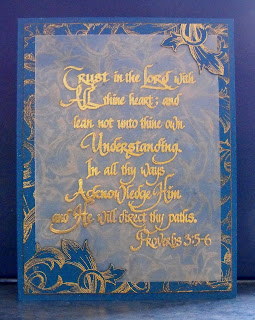 Trust in the Lord with
All thine heart; and
lean not unto thine own
Understanding.
In all thy ways
Acknowledge Him
and He will direct thy paths.
Proverbs 3:5-6